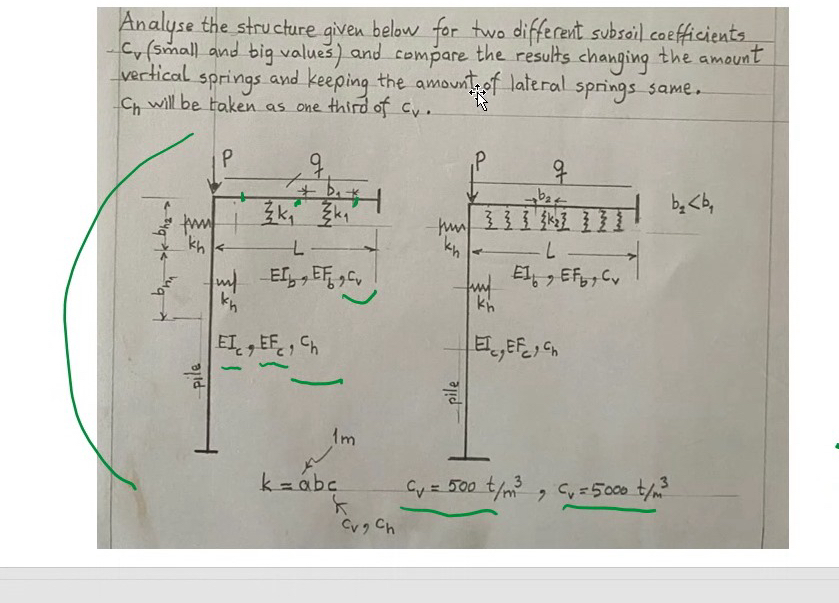 Analyse the structure given below for two different subsoil coefficients
Cv (small and big values) and compare the results changing the amount
vertical springs and keeping the amount of lateral springs same.
Ch will be taken as one third of Cv.
P q b1 P q b2 b2<b1
k1 k1 k2
bh2 kh L kh L
EIb, EFb, Cv EIb, EFb, Cv
bh1 kh kh
EIc, EFc, Ch EIc, EFc, Ch
pile pile
1m
k = abc Cv = 500 t/m³, Cv = 5000 t/m³
Cv, Ch